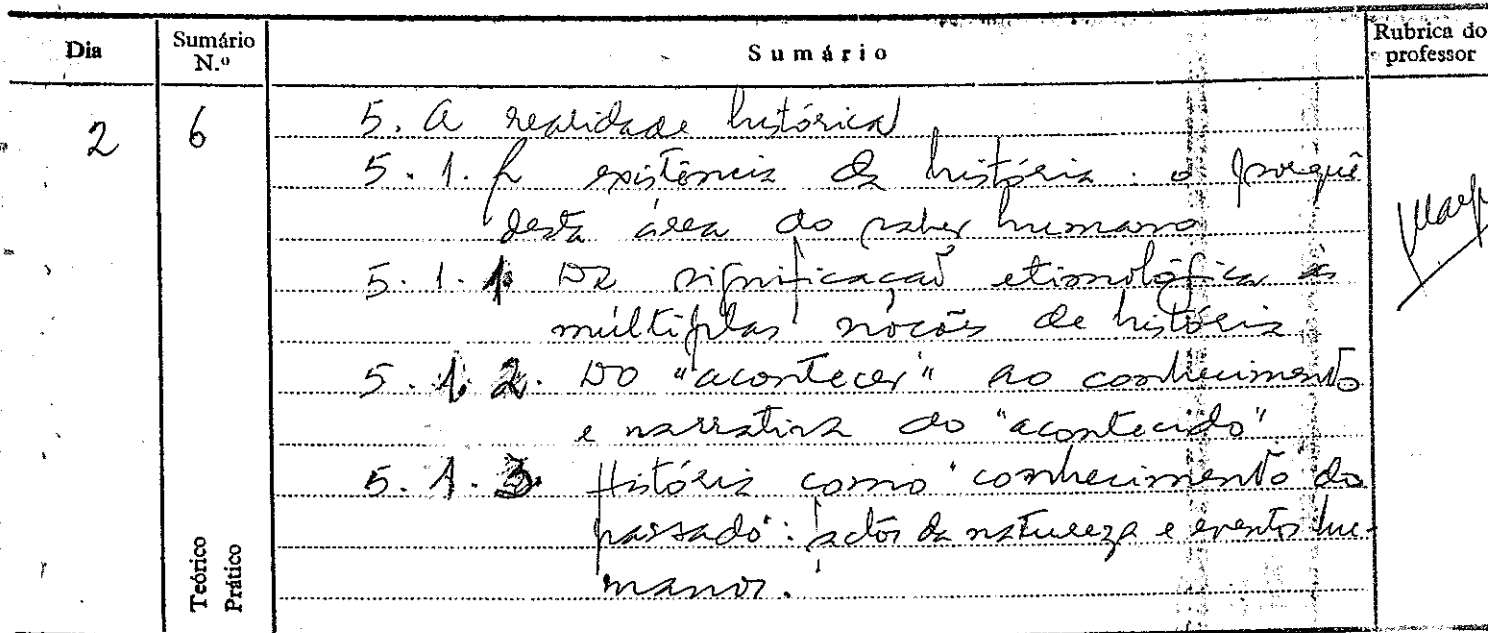 Dia
Sumário N.º
Sumário
Rubrica do professor
2
6
5. A realidade histórica
5.1. A existência da história: o porquê
desta área do saber humano
5.1.1. Da significação etimológica às
múltiplas noções de história
5.1.2. Do "acontecer" ao conhecimento
e narrativa do "acontecido"
5.1.3. História como "conhecimento do
passado": factos da natureza e eventos hu-
manos.
Teórico
Prático